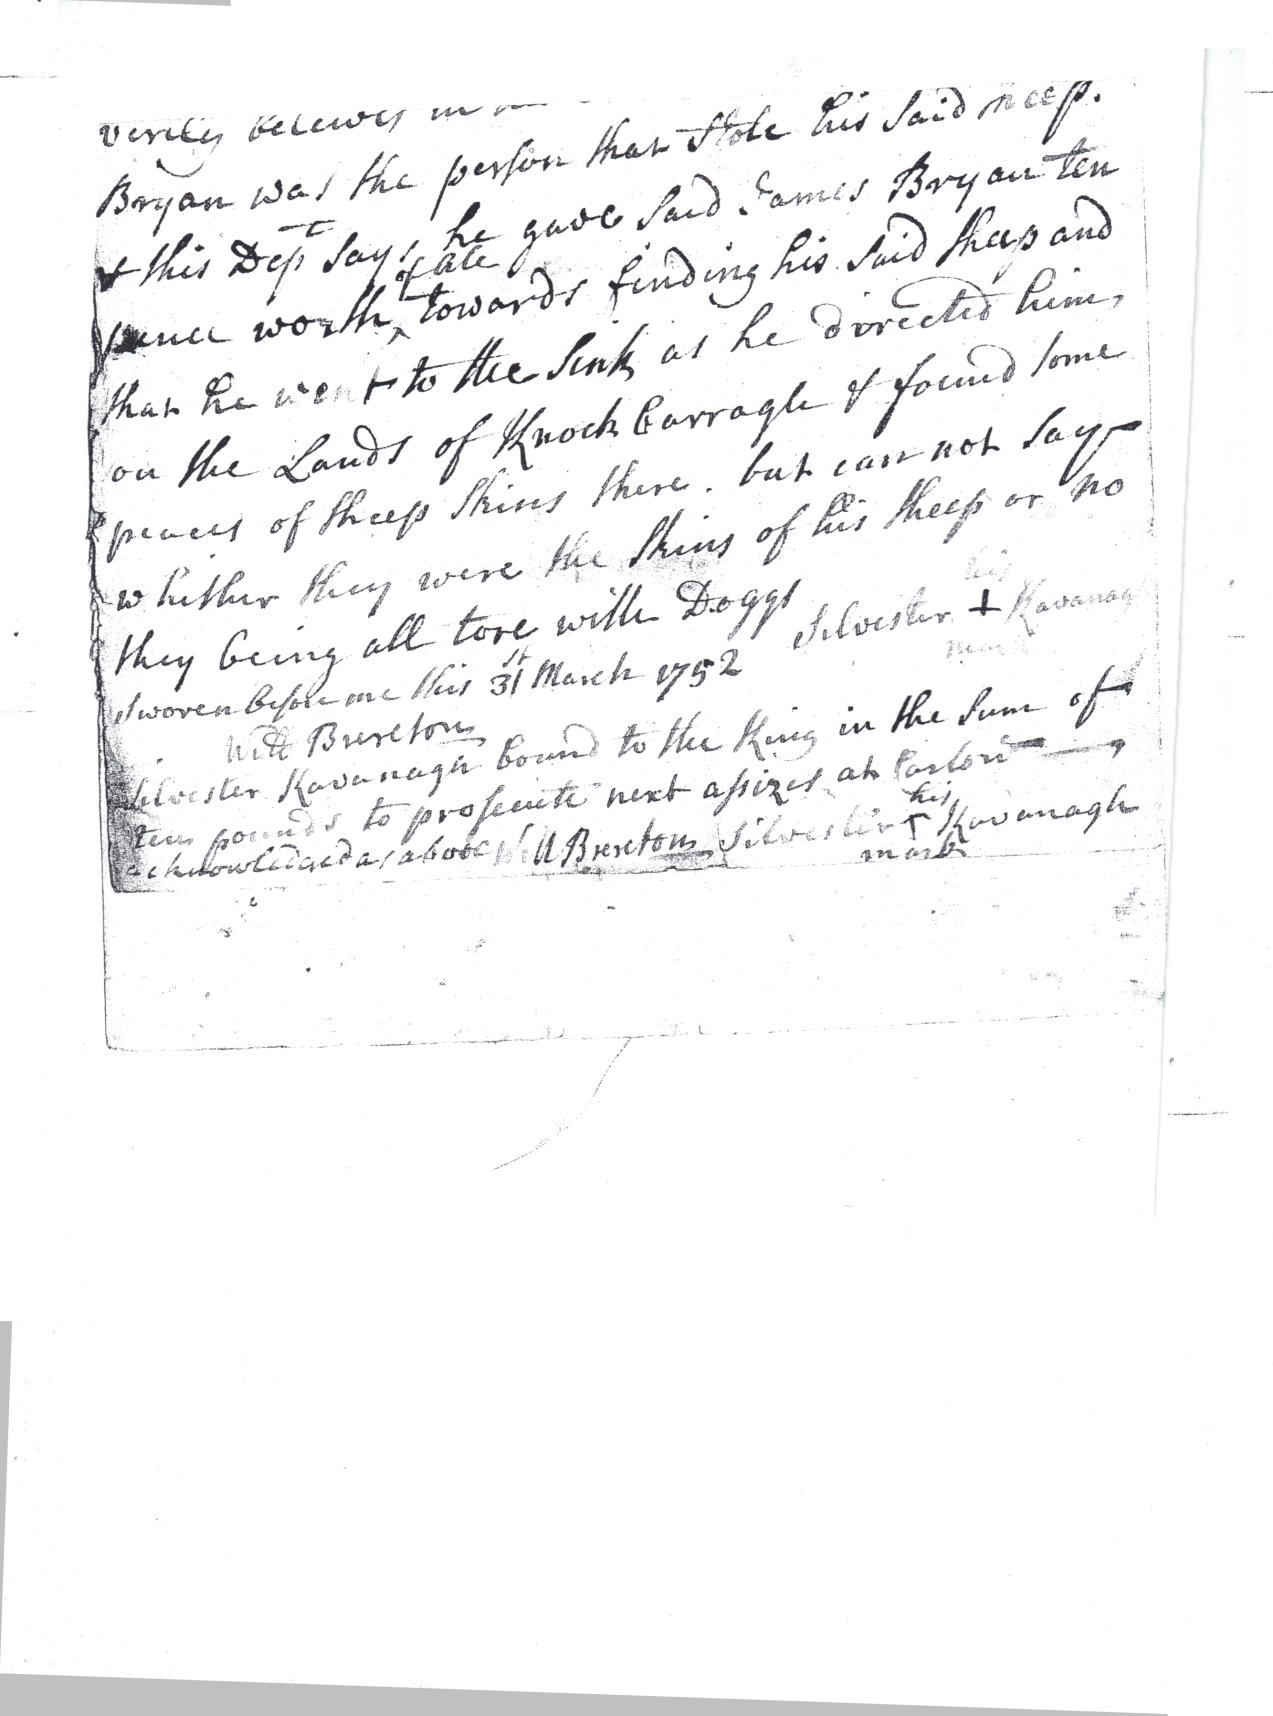 verily beleives in
Bryan was the person that Stole his said sheep.
& this Dept says he gave said James Bryan ten
pence worth of ale towards finding his said sheep and
that he went to the Sink as he directed him,
on the Lands of Knock barragh & found some
peaces of sheep skins there. but can not say
whither they were the skins of his sheep or no
they being all tore with Doggs
Silvester his + mark Kavanagh
Sworen before me this 31st March 1752
Will Brereton
Silvester Kavanagh bound to the King in the Sum of
ten pounds to prosecute next assizes at Carlow
acknowledged as above Will Brereton Silvester his + mark Kavanagh